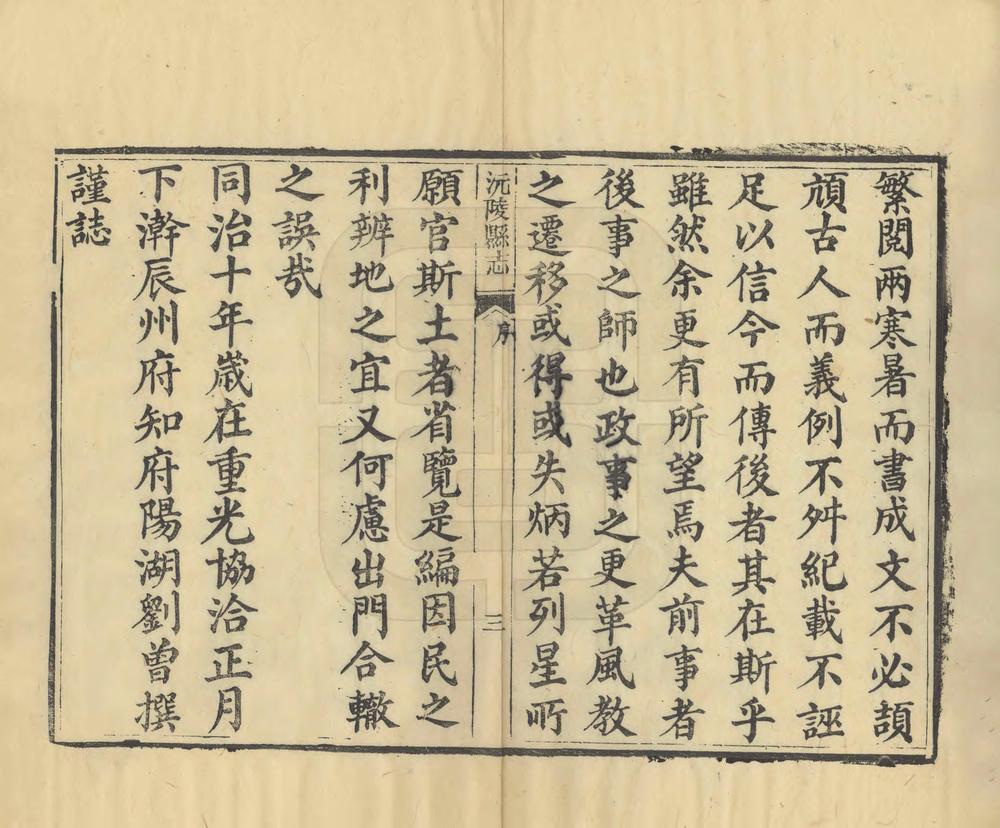 繁閱兩寒暑而書成文不必頡
頏古人而義例不舛紀載不誣
足以信今而傳後者其在斯乎
雖然余更有所望焉夫前事者
後事之師也政事之更革風教
之遷移或得或失炳若列星所
沅陵縣志
序
三
願官斯土者省覽是編因民之
利辨地之宜又何慮出門合轍
之誤哉
同治十年歲在重光協洽正月
下澣辰州府知府陽湖劉曾撰
謹誌